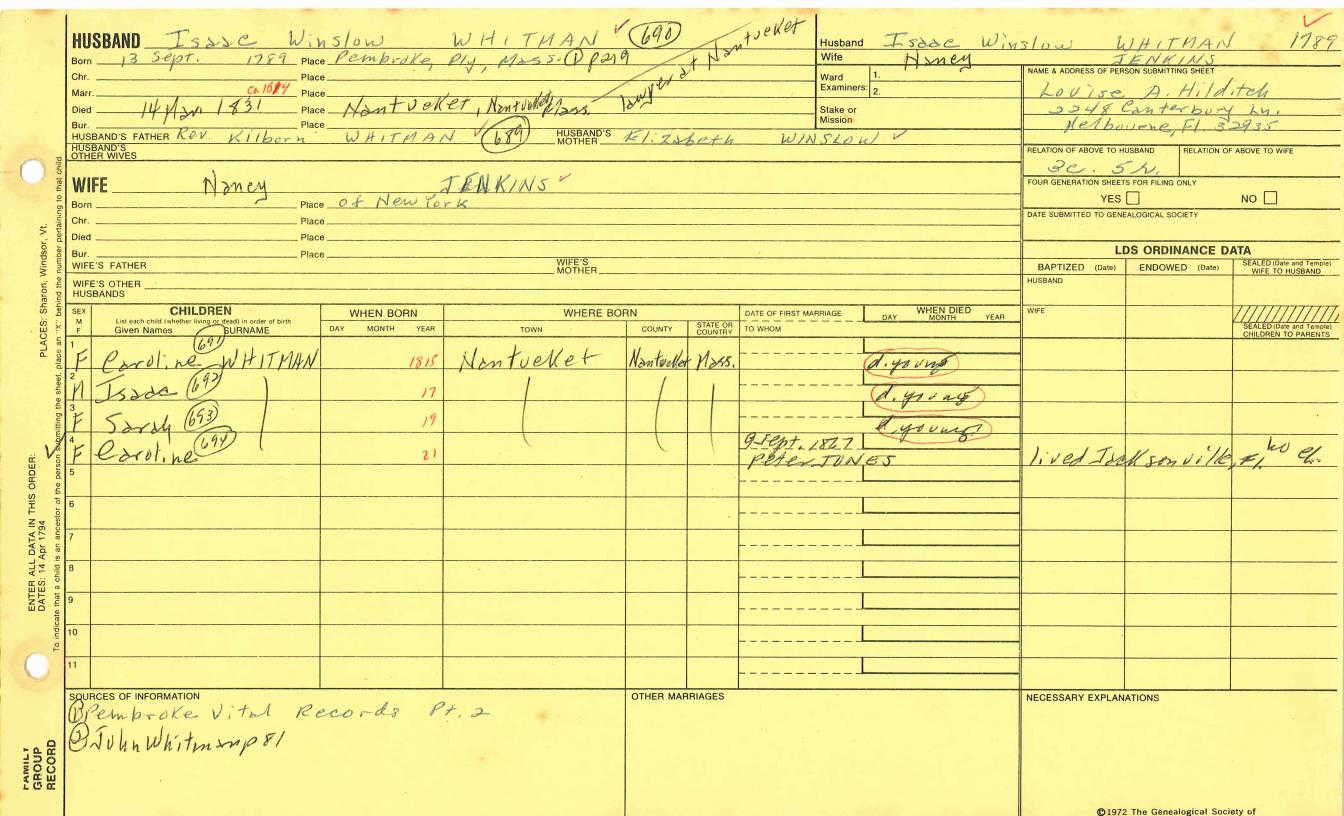 HUSBAND Isaac Winslow WHITMAN ✓ 690
Born 13 Sept. 1789 Place Pembroke, Ply, Mass. ① p 219
lawyer at Nantucket
Chr. Place
Marr. Ca 1814 Place
Died 14 Mar 1831 Place Nantucket, Nantucket, Mass.
Bur. Place
HUSBAND'S FATHER Rev. Kilborn WHITMAN ✓ 689 HUSBAND'S MOTHER Elizabeth WINSLOW ✓
HUSBAND'S OTHER WIVES
WIFE Nancy JENKINS ✓
Born Place of New York
Chr. Place
Died Place
Bur. Place
WIFE'S FATHER WIFE'S MOTHER
WIFE'S OTHER HUSBANDS
✓
Husband Isaac Winslow WHITMAN 1789
Wife Nancy JENKINS
Ward Examiners: 1.
2.
Stake or Mission
NAME & ADDRESS OF PERSON SUBMITTING SHEET
Louise A. Hilditch
2248 Canterbury Ln.
Melbourne, Fl. 32935
RELATION OF ABOVE TO HUSBAND RELATION OF ABOVE TO WIFE
3c. 5r.
FOUR GENERATION SHEETS FOR FILING ONLY
YES NO
DATE SUBMITTED TO GENEALOGICAL SOCIETY
LDS ORDINANCE DATA
BAPTIZED (Date) ENDOWED (Date) SEALED (Date and Temple) WIFE TO HUSBAND
HUSBAND
WIFE
SEALED (Date and Temple) CHILDREN TO PARENTS
SEX M F CHILDREN WHEN BORN WHERE BORN DATE OF FIRST MARRIAGE WHEN DIED
List each child (whether living or dead) in order of birth
Given Names SURNAME DAY MONTH YEAR TOWN COUNTY STATE OR COUNTRY TO WHOM DAY MONTH YEAR
1 F Caroline 691 WHITMAN 1815 Nantucket Nantucket Mass. d. young
2 M Isaac 692 17 d. young
3 F Sarah 693 19 d. young
4 ✓ F Caroline 694 21 9 Sept. 1847
Peter JONES lived Jacksonville, Fl. no ch.
5
6
7
8
9
10
11
SOURCES OF INFORMATION
① Pembroke Vital Records Pt. 2
② John Whitman p 81
OTHER MARRIAGES
NECESSARY EXPLANATIONS
©1972 The Genealogical Society of
PLACES: Sharon, Windsor, Vt.
ENTER ALL DATA IN THIS ORDER:
DATES: 14 Apr 1794
To indicate that a child is an ancestor of the person submitting the sheet, place an "X" behind the number pertaining to that child.
FAMILY
GROUP
RECORD